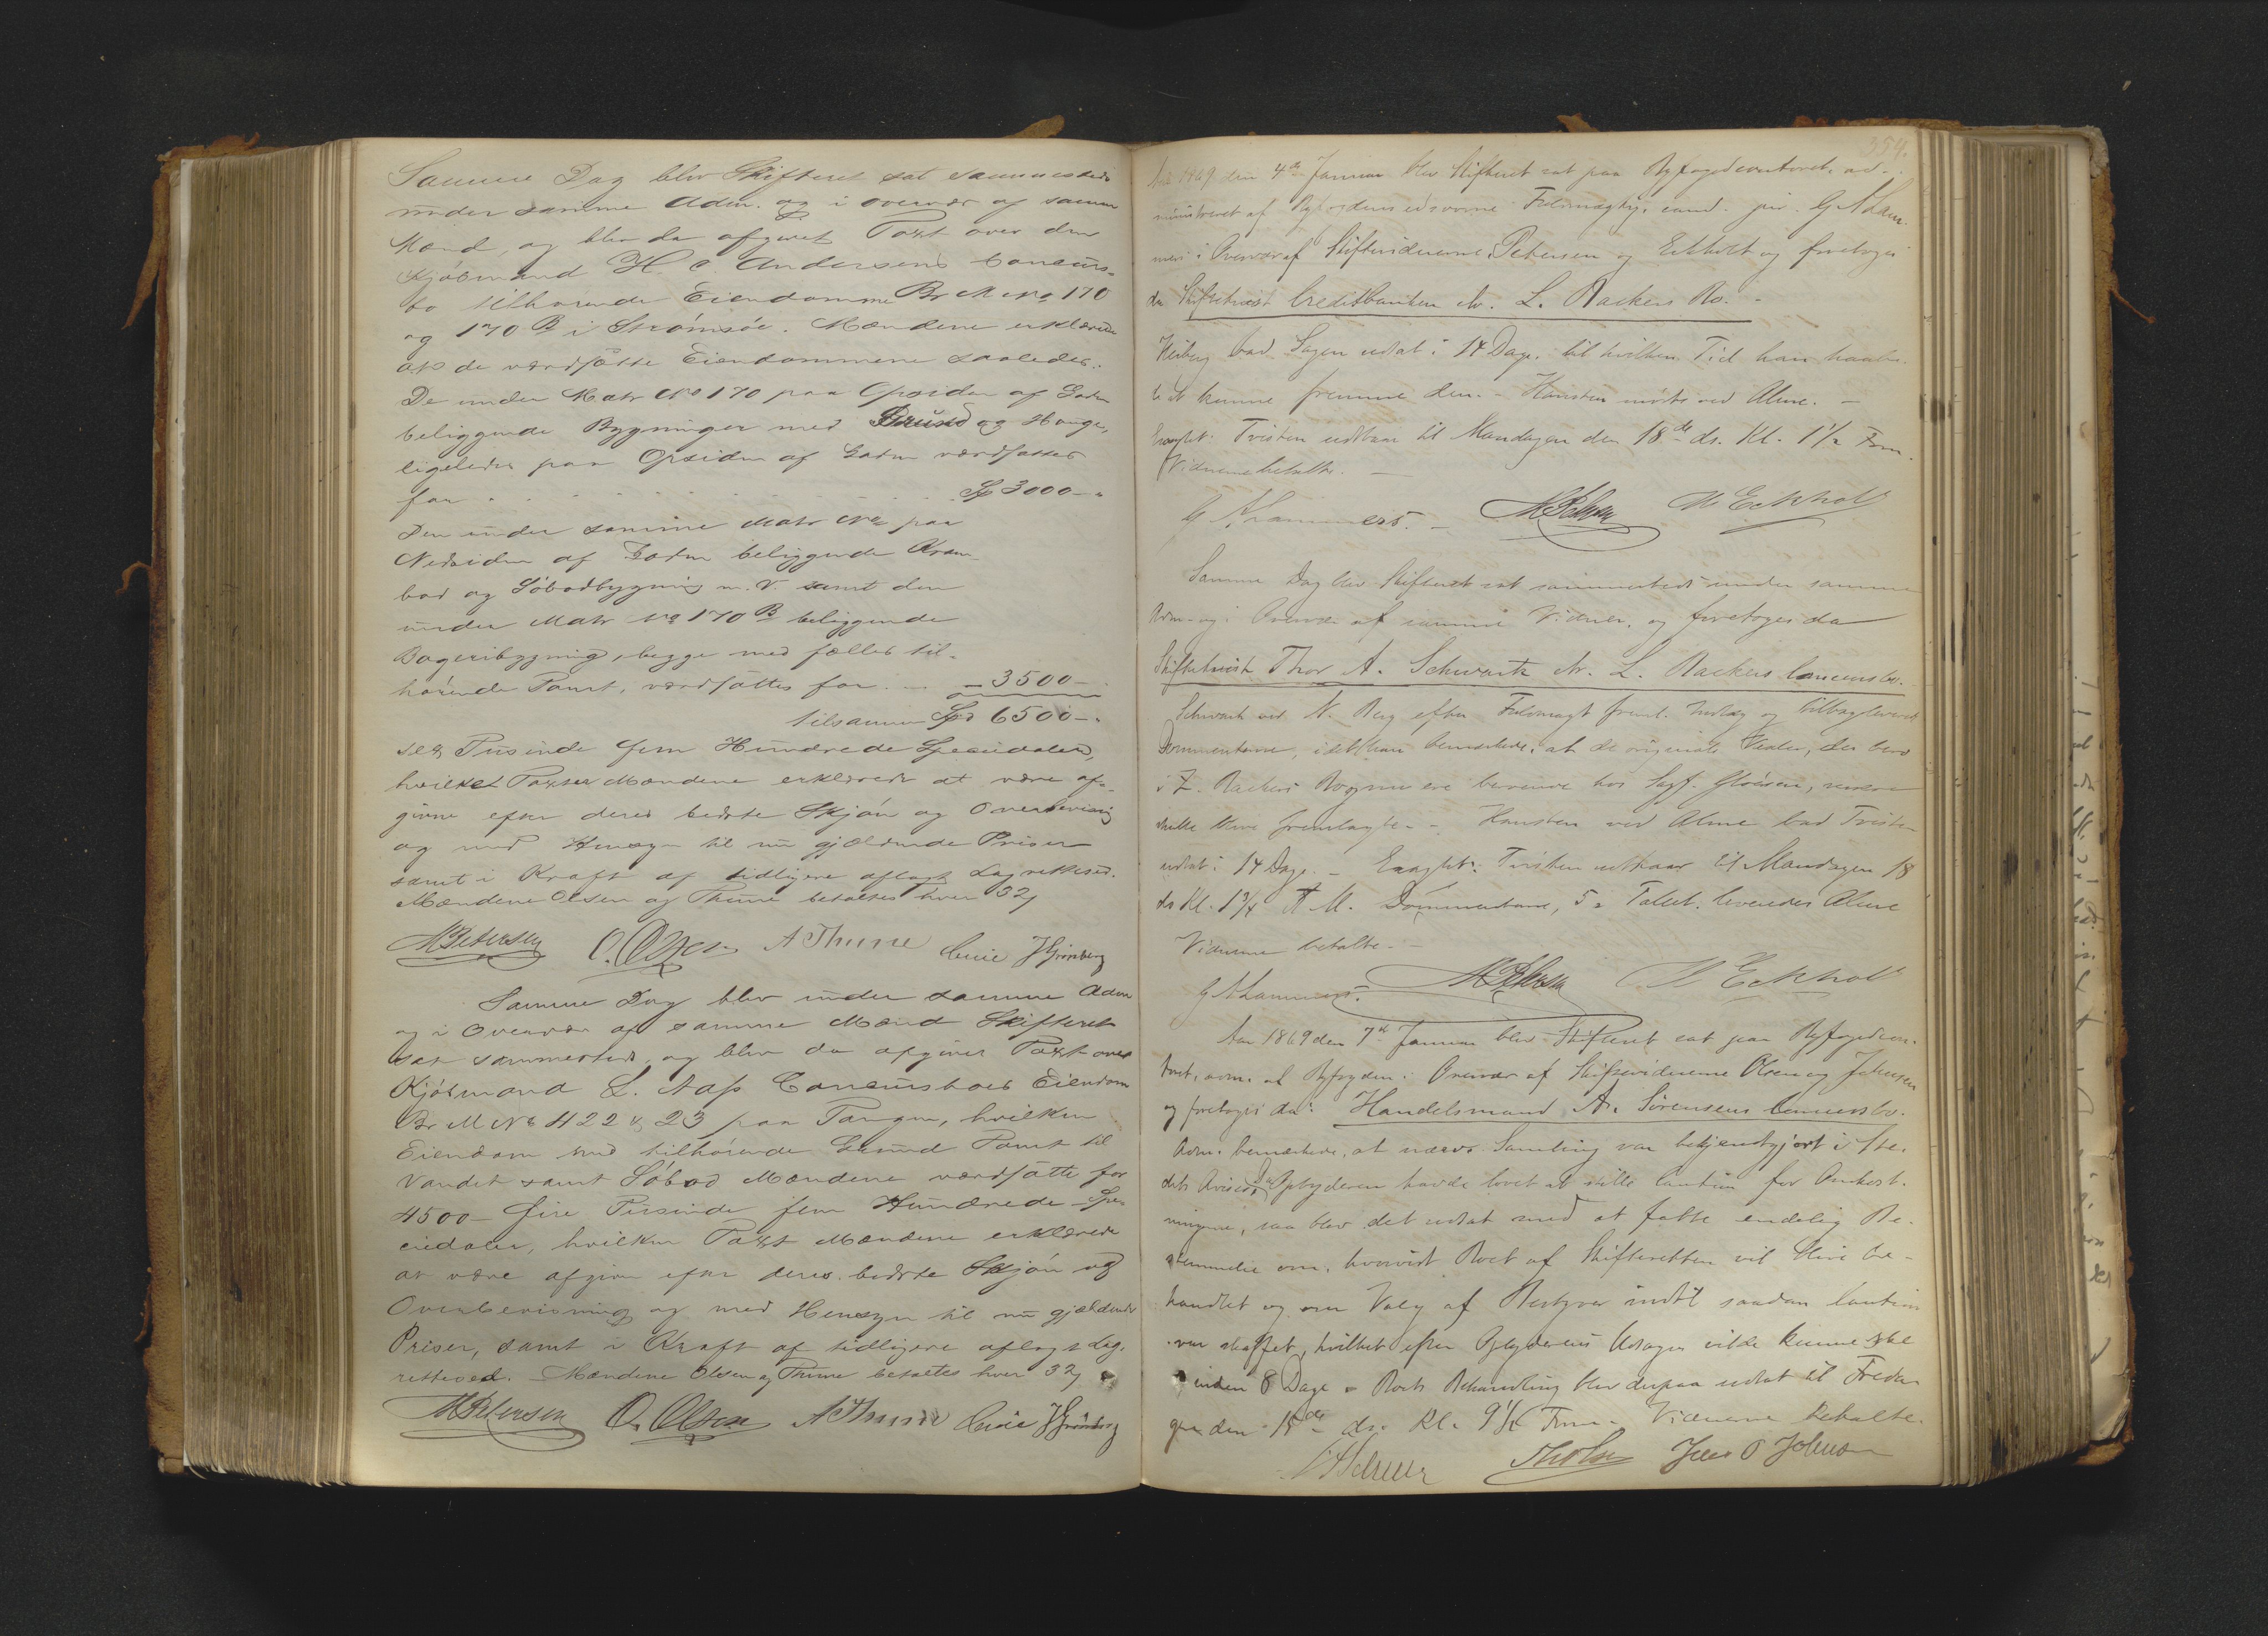 Samme Dag blev Skifteret sat sammesteds
under samme Adm. og i overvær af samme
Mænd, og blev da afgivet Taxt over den
Kjøbmand H. C. Andersens Concurs-
bo tilhørende Eiendomme Br M No 170
og 170 B i Strømsøe. Mændene erklærede
at de værdsatte Eiendommene saaledes:
De under Matr No 170 paa Opsiden af Gaden
beliggende Bygninger med Grund og Hauge,
ligeledes paa Opsiden af Gaden værdsattes
for . . . . . . . . Sp 3000 - "
Den under samme Matr No paa
Nedsiden af Gaden beliggende Kram-
bod og Søbodbygning m. V. samt den
under Matr No 170 B beliggende
Bageribygning, begge med fælles til-
hørende Tomt, værdsattes for . . - 3500 -
tilsammen Spd 6500 - "
sex Tusinde fem Hundrede Speciedaler,
hvilket Taxter Mændene erklærede at være af-
givne efter deres bedste Skjøn og Overbevisning
og med Hensyn til nu gjældende Priser
samt i Kraft af tidligere aflagt Lagrettesed.
Mændene Olsen og Thune betaltes hver 32 ʒ
M Petersen O. Olsen A Thune Cuie J Grønberg
Samme Dag blev under samme Adm
og i Overvær af samme Mænd Skifteret
sat sammesteds, og blev da afgiven Taxt over
Kjøbmand L. Aass Concursboes Eiendom
Br M No 422 & 23 paa Tangen, hvilken
Eiendom med tilhørende Grund Tomt til
Vandet samt Søbod Mændene værdsatte for
4500 - fire Tusinde fem Hundrede Spe-
ciedaler, hvilken Taxt Mændene erklærede
at være afgiven efter deres bedste Skjøn og
Overbevisning og med Hensyn til nu gjældende
Priser, samt i Kraft af tidligere aflagt Lag-
rettesed. Mændene Olsen og Thune betaltes hver 32 ʒ
M Petersen O. Olsen A Thune Cuie J Grønberg
354.
Aar 1869 den 4de Januar blev Skifteret sat paa Byfogedcontoret, ad-
ministreret af Byfogdens edsvorne Fuldmægtig, cand. jur. G A Lam-
mers i Overvær af Skiftevidnerne Petersen og Eckholt og foretoges
da Skiftetvist Creditbanken ctr. L. Backers Bo. -
Heiberg bad Sagen udsat i 14 Dage, til hvilken Tid han haabe-
de at kunne fremme den. - Hansten mødte ved Alme. -
Eragtet: Tvisten udstaar til Mandagen den 18de ds. Kl. 1 1/2 Fm.
Vidnerne betalte. -
G A Lammers. - M Petersen H Eckholt
Samme Dag blev Skifteret sat sammesteds under samme
Adm. og i Overvær af samme Vidner, og foretoges da
Skiftetvist Thor A. Schwartz ctr. L. Backers Concursbo.
Schwartz ved N. Berg efter Fuldmagt freml. Indlæg og tilbageleverede
Documenterne, idet han bemærkede, at de originale Vexler, der bero
i L. Backers Bo er beroende hos Sagf.
skulle blive fremlagte. - Hansten ved Alme bad Tvisten
udsat i 14 Dage. - Eragtet: Tvisten udstaar til Mandagen 18
ds Kl. 1 3/4 F. M. Documenterne, 5 i Tallet, leveredes Alme
Vidnerne betalte. -
G A Lammers. M Petersen H Eckholt
Aar 1869 den 7de Januar blev Skifteret sat paa Byfogedcon-
toret, adm. af Byfogden i Overvær af Skiftevidnerne Olsen og Johnsen
og foretoges da: Handelsmand A. Sørensens Concursbo.
Adm. bemærkede, at nærv. Samling var bekjendtgjort i Ste-
dets Aviser. Da Opbyderen havde lovet at stille Caution for Omkost-
ningerne, saa blev det udsat med at fatte endelig Be-
stemmelse om, hvorvidt Boet af Skifteretten vil blive be-
handlet og om Valg af Bestyrer indtil saadan Caution
var skaffet, hvilket efter Opbyderens Udsagn vilde kunne ske
inden 8 Dage. Boets Behandling blev derpaa udsat til Freda-
gen den 15de ds. Kl. 9 1/2 Fm. Vidnerne betalte.
Jens O Johnsen